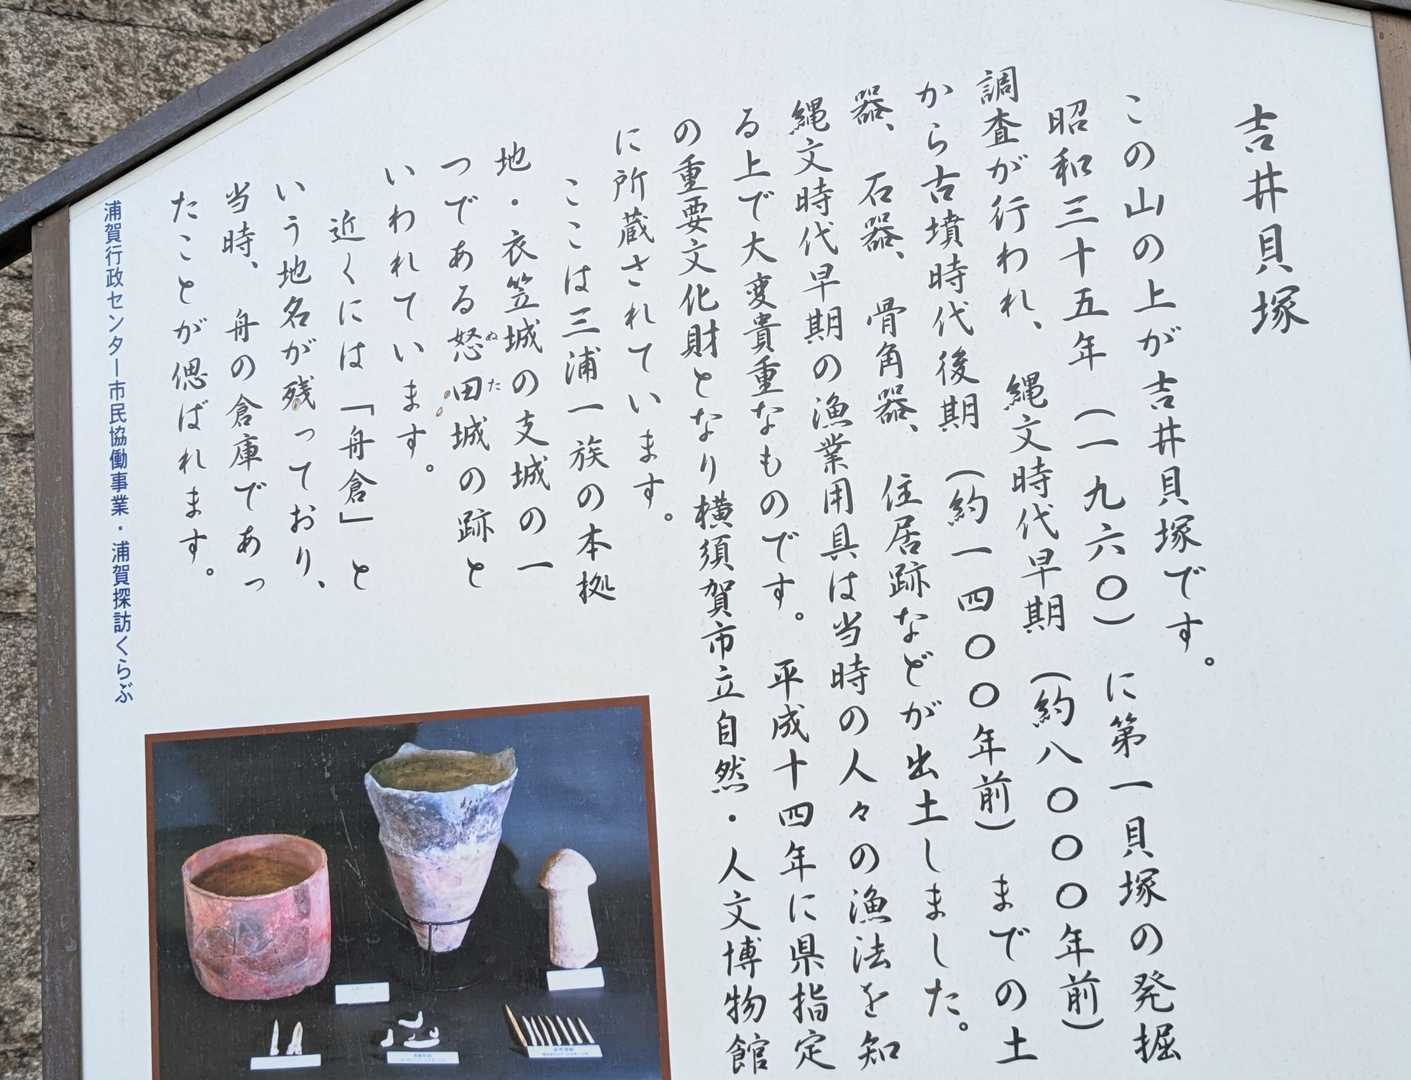 吉井貝塚
この山の上が吉井貝塚です。
昭和三十五年（一九六〇）に第一貝塚の発掘
調査が行われ、縄文時代早期（約八〇〇〇年前）
から古墳時代後期（約一四〇〇年前）までの土
器、石器、骨角器、住居跡などが出土しました。
縄文時代早期の漁業用具は当時の人々の漁法を知
る上で大変貴重なものです。平成十四年に県指定
の重要文化財となり横須賀市立自然・人文博物館
に所蔵されています。
ここは三浦一族の本拠
地・衣笠城の支城の一
つである怒田城の跡と
ぬた
いわれています。
近くには「舟倉」と
いう地名が残っており、
当時、舟の倉庫であっ
たことが偲ばれます。
浦賀行政センター市民協働事業・浦賀探訪くらぶ